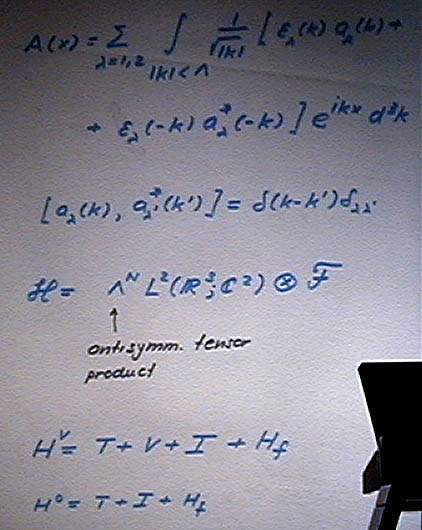 A(x) = Σ_{λ=1,2} ∫_{|k|<Λ} 1/√|k| [ ε_λ(k) a_λ(k) +
+ ε_λ(-k) a*_λ(-k) ] e^{ikx} d³k
[a_λ(k), a*_λ'(k')] = δ(k-k') δ_λλ'
ℋ = Λ^N L²(ℝ³; ℂ²) ⊗ ℱ
↑
antisymm. tensor
product
H^V = T + V + I + H_f
H^0 = T + I + H_f